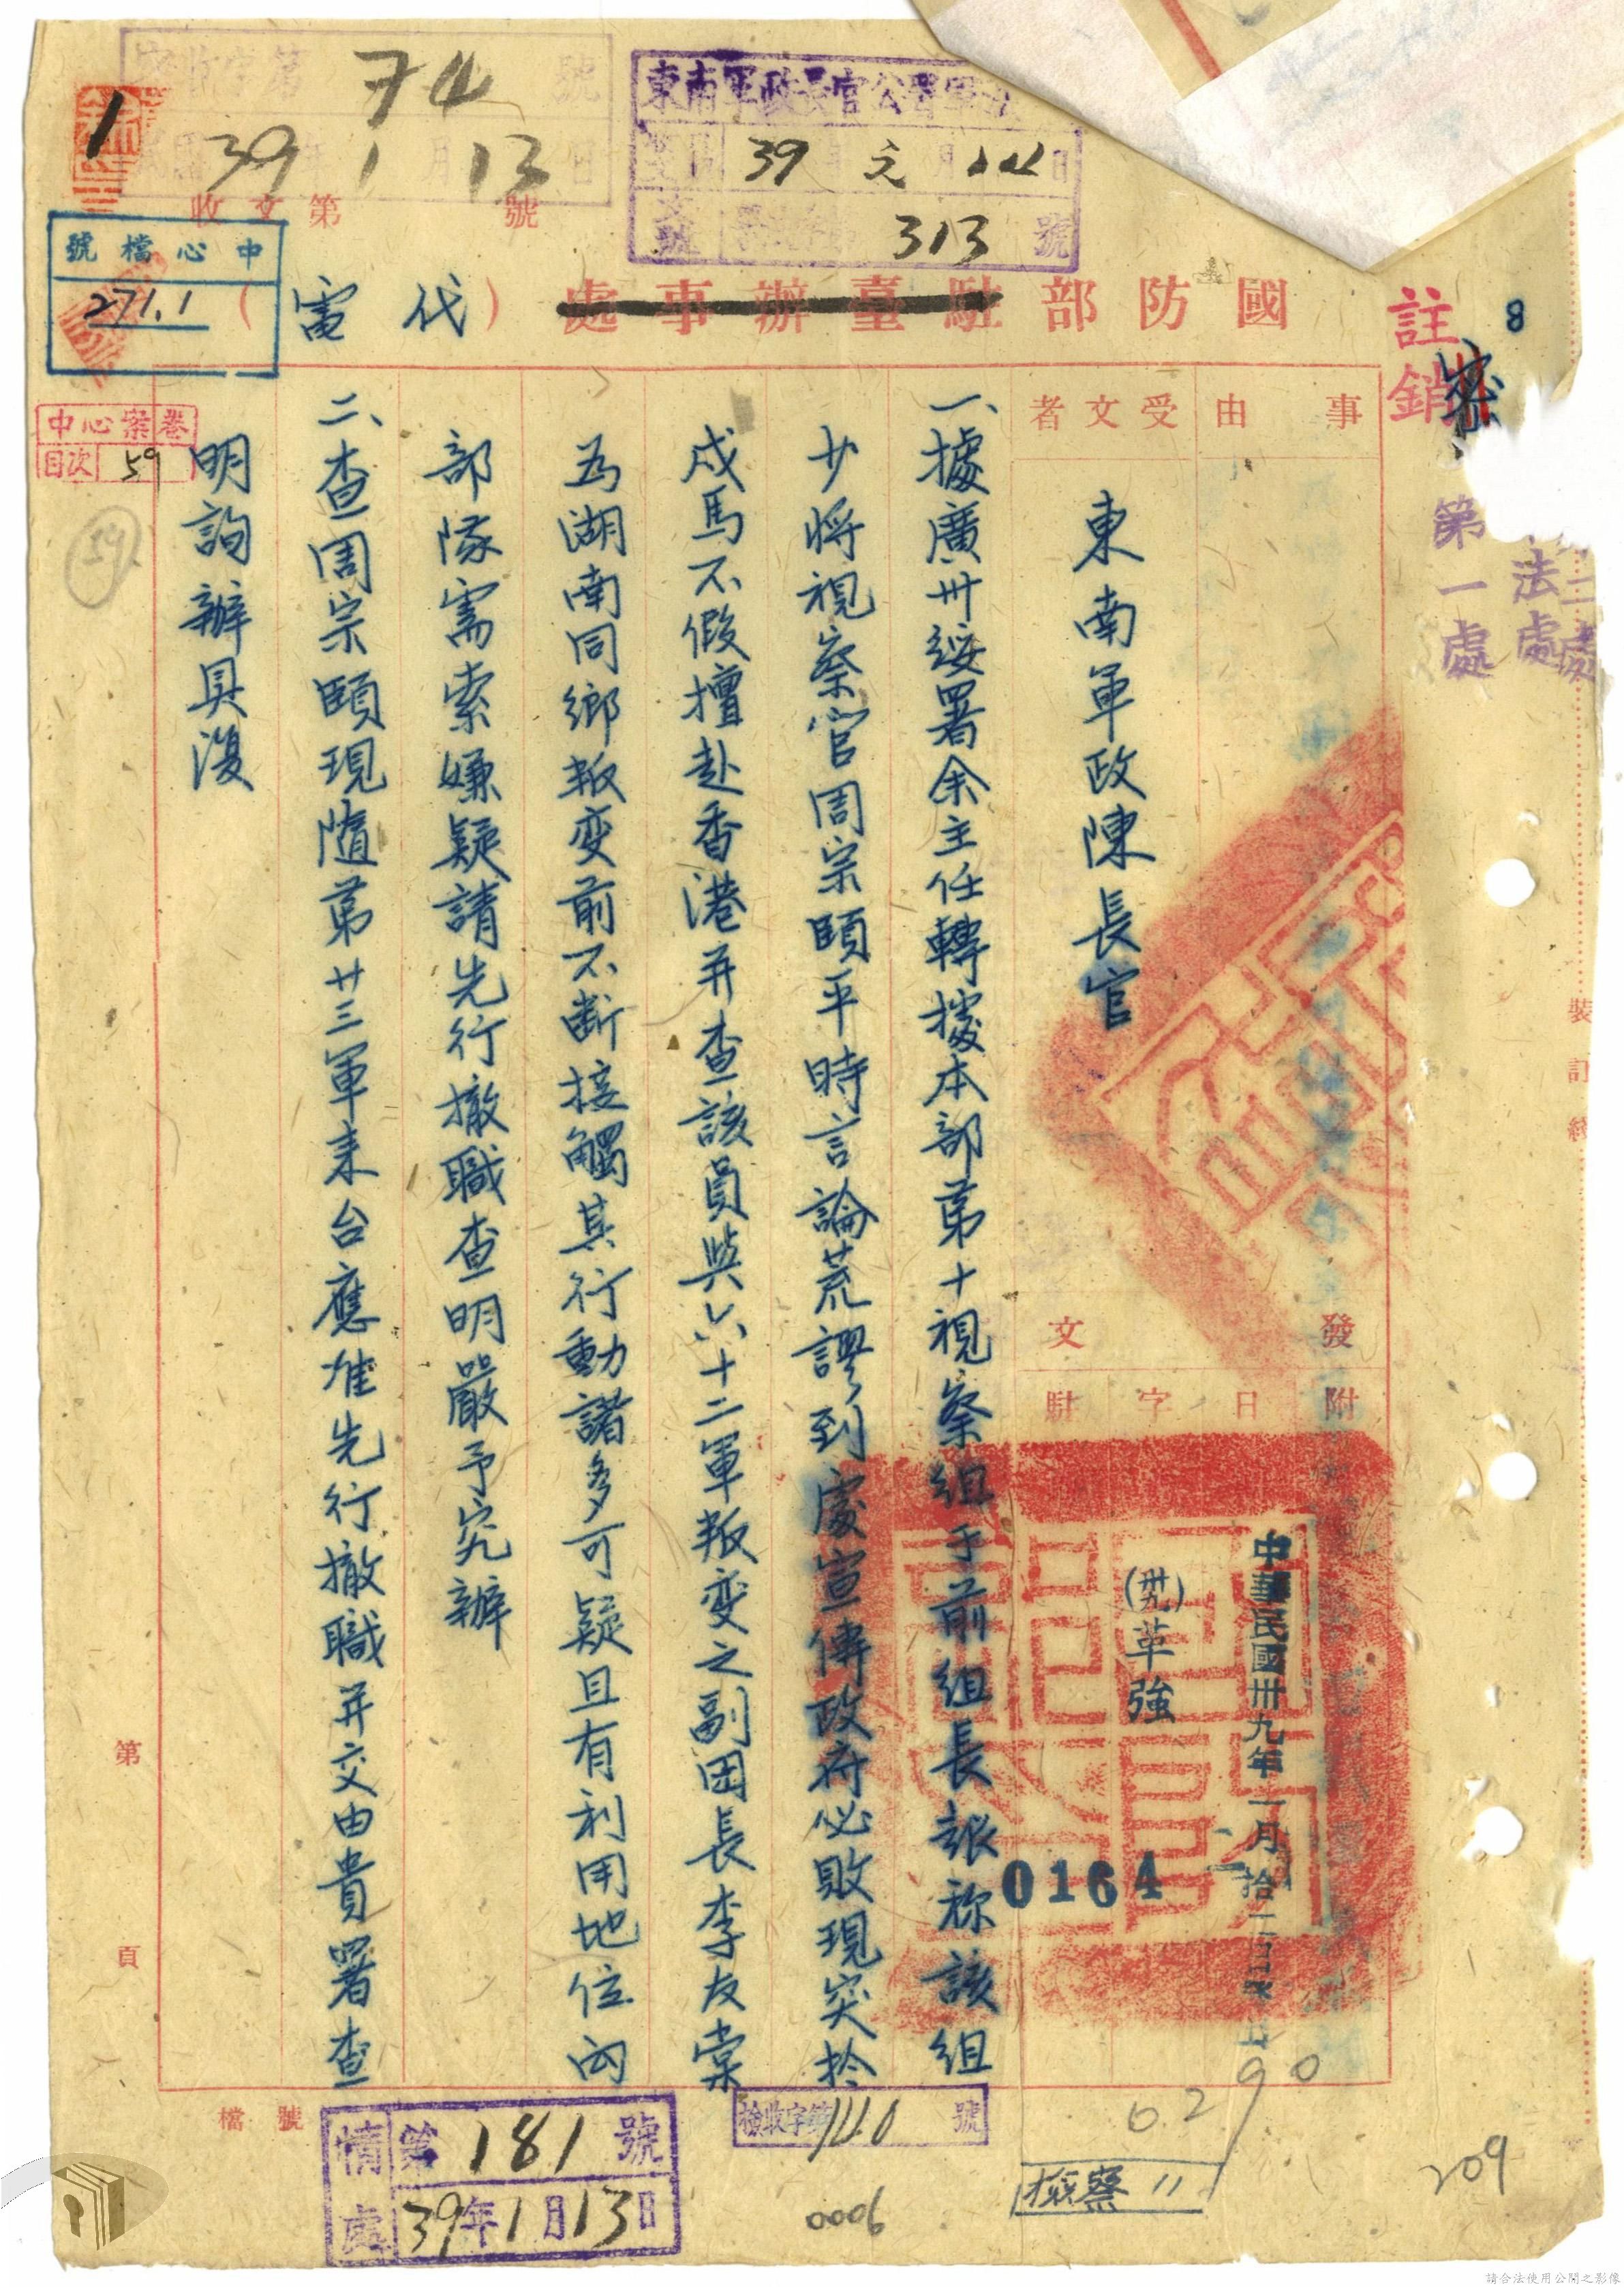 74
39 1 13
收文第 號
東南軍政長官公署軍法
39年元月14日
313 號
中心檔號
271.1
國防部駐臺辦事處(代電)
註銷
密
8
第一處
法處
二處
中心案卷
目次 59
59
事由
受文者
東南軍政陳長官
發文
附
日
字
駐
中華民國卅九年一月拾二日
(卅九)革強
0164
一、據廣州綏署余主任轉據本部第十視察組于前組長報称該組
少將視察官周宗頤平時言論荒謬到處宣傳政府必敗現突於
戍馬不假擅赴香港并查該員與六十二軍叛变之副団長李友棠
為湖南同鄉叛变前不断接觸其行動諸多可疑且有利用地位向
部隊需索嫌疑請先行撤職查明嚴予究辦
二、查周宗頤現隨第廿三軍来台應准先行撤職并交由貴署查
明訽辦具復
裝訂線
第 頁
檔號
情 第181號
處 39年1月13日
檢收字第1140號
0006
6290
檢察
209
請合法使用公開之影像